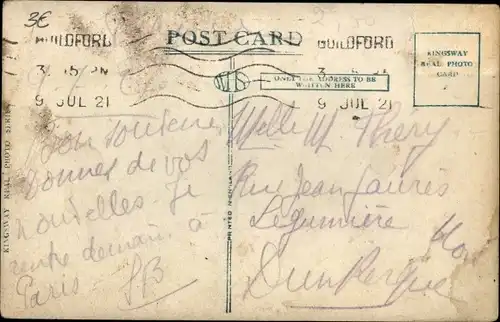 3€
POST CARD
GUILDFORD
GUILDFORD
3.15 PM
9 JUL 21
9 JUL 21
KINGSWAY
REAL PHOTO
CARD
WS
ONLY THE ADDRESS TO BE
WRITTEN HERE
KINGSWAY REAL PHOTO SERIES
PRINTED IN ENGLAND
Bon souvenir
Donnez de vos
nouvelles. Je
rentre demain à
Paris - SB
Melle M Thery
Rue Jean Jaurès
Légumière
Dunkerque